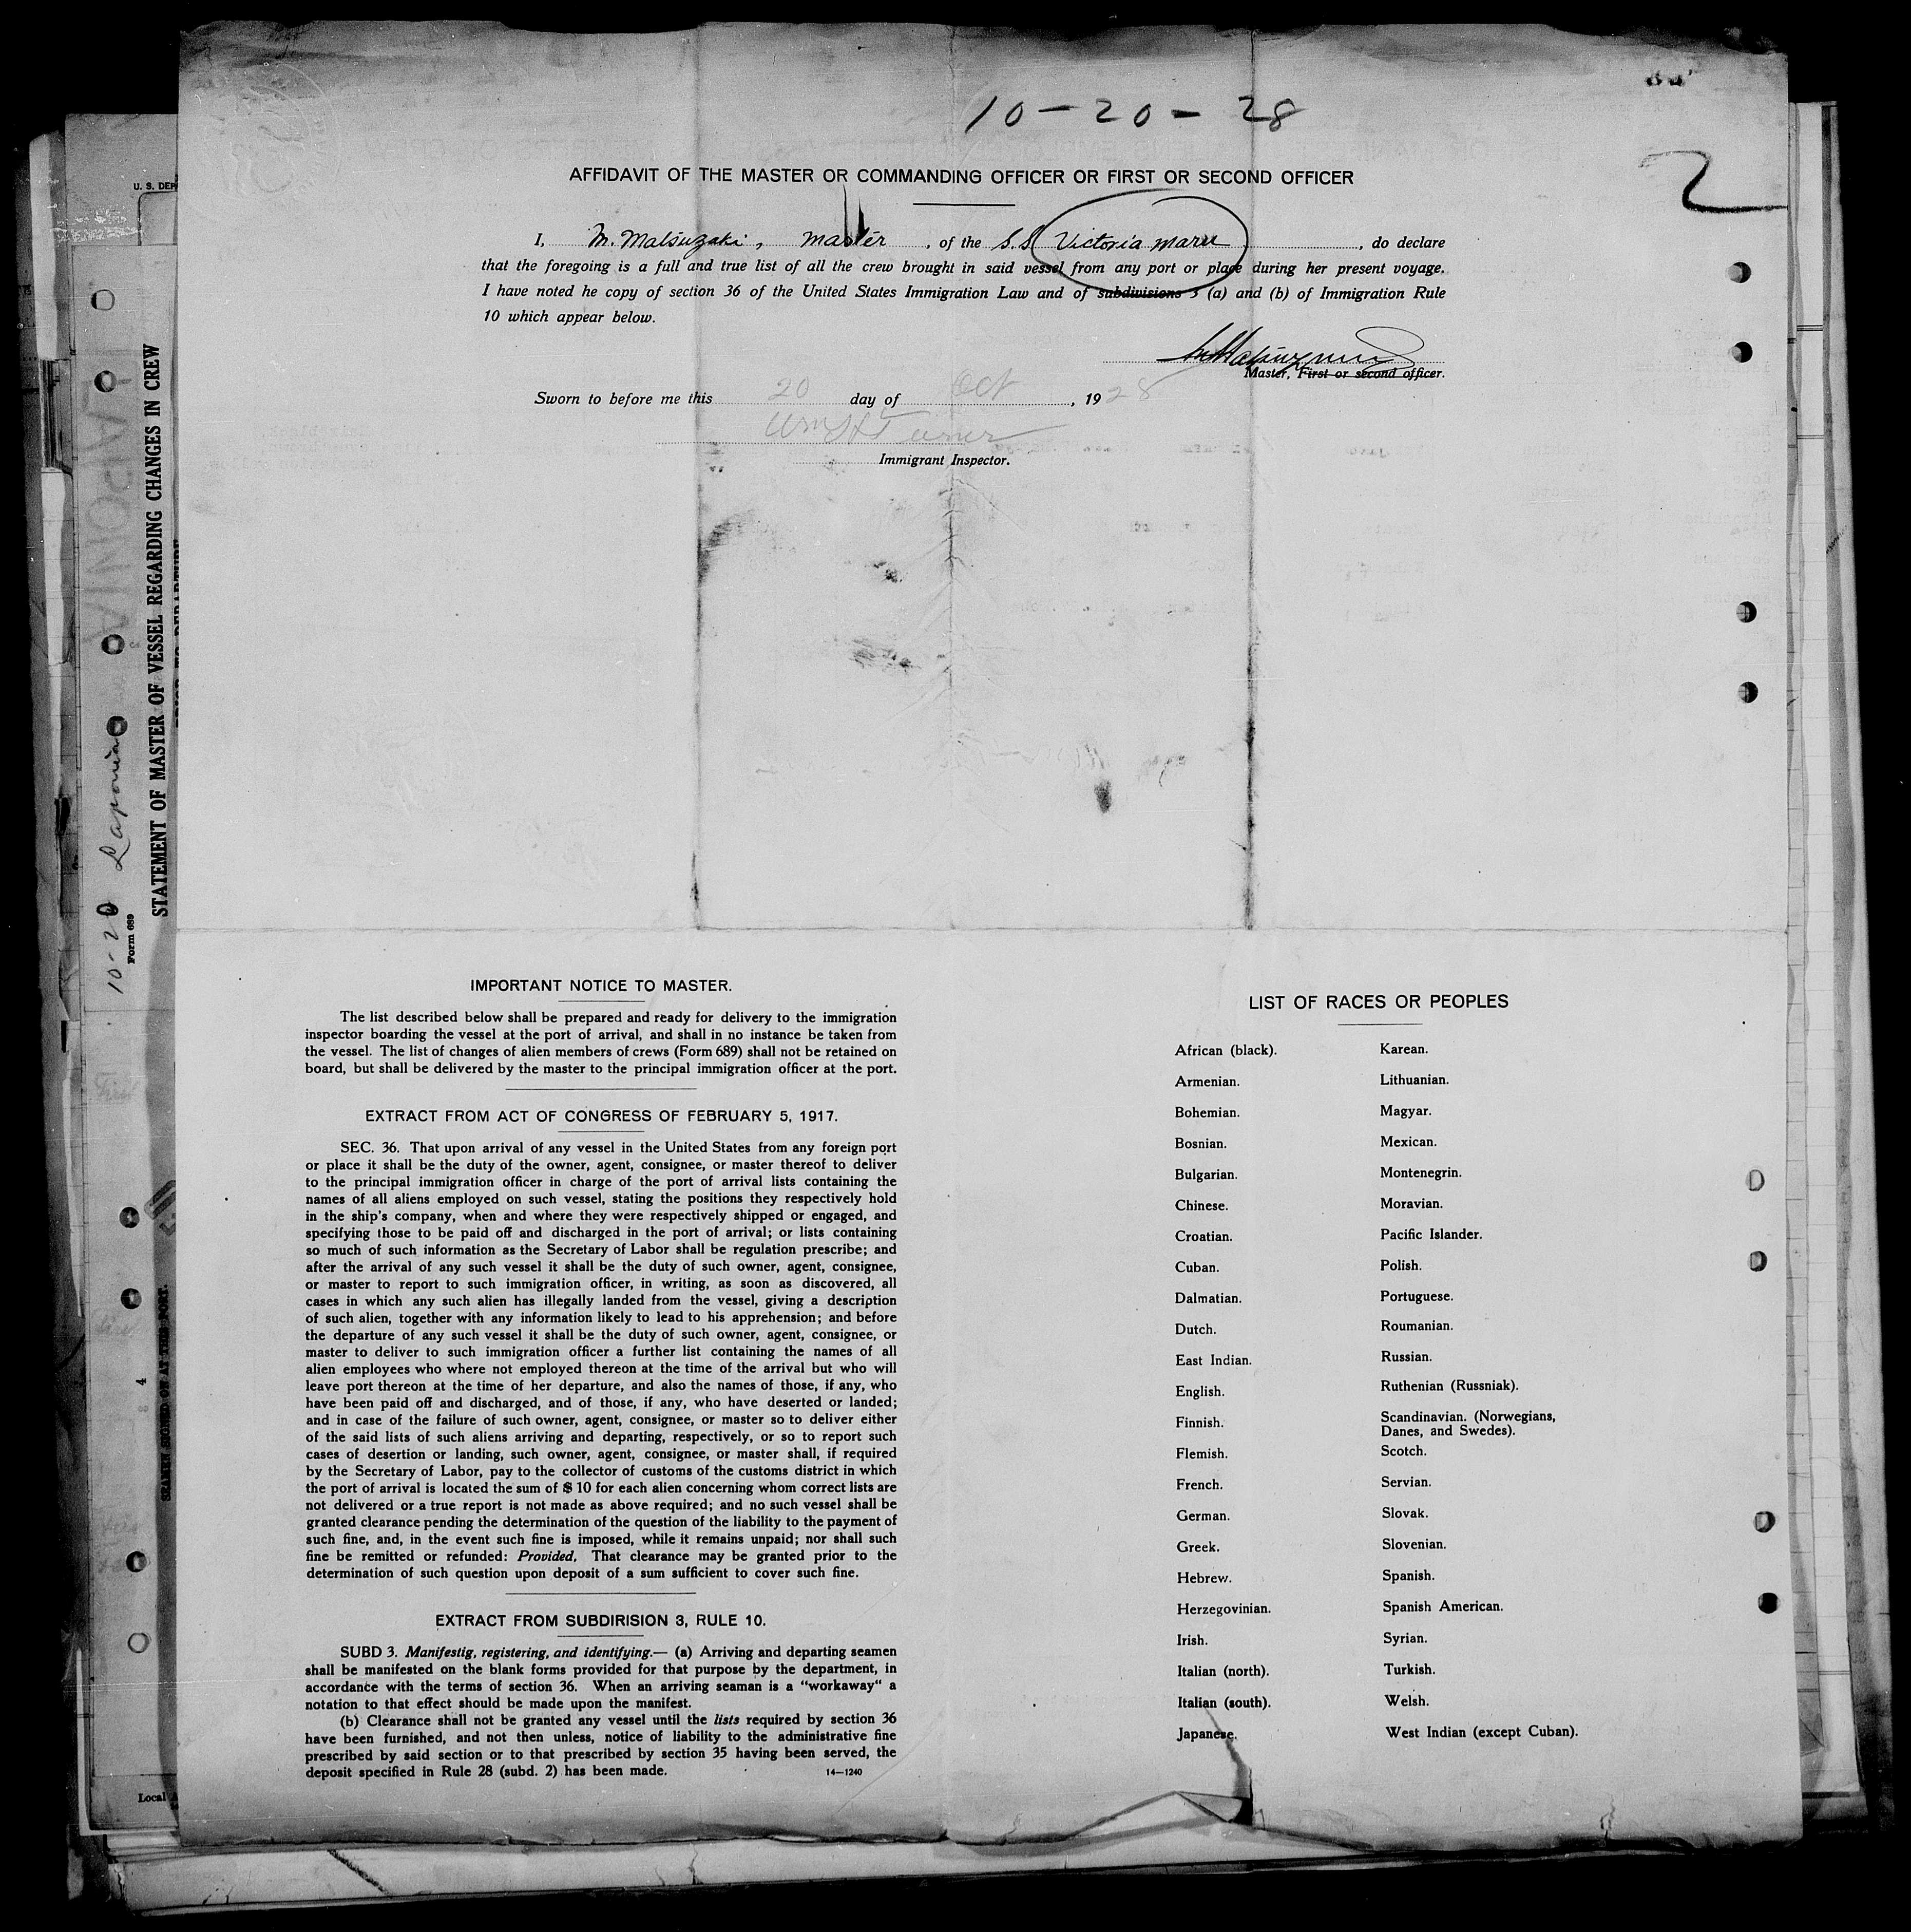 10-20-28
2
AFFIDAVIT OF THE MASTER OR COMMANDING OFFICER OR FIRST OR SECOND OFFICER
I, M. Matsuzaki, master, of the S.S. Victoria maru, do declare
that the foregoing is a full and true list of all the crew brought in said vessel from any port or place during her present voyage.
I have noted he copy of section 36 of the United States Immigration Law and of subdivisions 3 (a) and (b) of Immigration Rule
10 which appear below.
Master, First or second officer.
Sworn to before me this 20 day of Oct, 1928
Immigrant Inspector.
IMPORTANT NOTICE TO MASTER.
The list described below shall be prepared and ready for delivery to the immigration
inspector boarding the vessel at the port of arrival, and shall in no instance be taken from
the vessel. The list of changes of alien members of crews (Form 689) shall not be retained on
board, but shall be delivered by the master to the principal immigration officer at the port.
EXTRACT FROM ACT OF CONGRESS OF FEBRUARY 5, 1917.
SEC. 36. That upon arrival of any vessel in the United States from any foreign port
or place it shall be the duty of the owner, agent, consignee, or master thereof to deliver
to the principal immigration officer in charge of the port of arrival lists containing the
names of all aliens employed on such vessel, stating the positions they respectively hold
in the ship's company, when and where they were respectively shipped or engaged, and
specifying those to be paid off and discharged in the port of arrival; or lists containing
so much of such information as the Secretary of Labor shall be regulation prescribe; and
after the arrival of any such vessel it shall be the duty of such owner, agent, consignee,
or master to report to such immigration officer, in writing, as soon as discovered, all
cases in which any such alien has illegally landed from the vessel, giving a description
of such alien, together with any information likely to lead to his apprehension; and before
the departure of any such vessel it shall be the duty of such owner, agent, consignee, or
master to deliver to such immigration officer a further list containing the names of all
alien employees who where not employed thereon at the time of the arrival but who will
leave port thereon at the time of her departure, and also the names of those, if any, who
have been paid off and discharged, and of those, if any, who have deserted or landed;
and in case of the failure of such owner, agent, consignee, or master so to deliver either
of the said lists of such aliens arriving and departing, respectively, or so to report such
cases of desertion or landing, such owner, agent, consignee, or master shall, if required
by the Secretary of Labor, pay to the collector of customs of the customs district in which
the port of arrival is located the sum of $ 10 for each alien concerning whom correct lists are
not delivered or a true report is not made as above required; and no such vessel shall be
granted clearance pending the determination of the question of the liability to the payment of
such fine, and, in the event such fine is imposed, while it remains unpaid; nor shall such
fine be remitted or refunded: Provided, That clearance may be granted prior to the
determination of such question upon deposit of a sum sufficient to cover such fine.
EXTRACT FROM SUBDIRISION 3, RULE 10.
SUBD 3. Manifestig, registering, and identifying.— (a) Arriving and departing seamen
shall be manifested on the blank forms provided for that purpose by the department, in
accordance with the terms of section 36. When an arriving seaman is a "workaway" a
notation to that effect should be made upon the manifest.
(b) Clearance shall not be granted any vessel until the lists required by section 36
have been furnished, and not then unless, notice of liability to the administrative fine
prescribed by said section or to that prescribed by section 35 having been served, the
deposit specified in Rule 28 (subd. 2) has been made.
14—1240
LIST OF RACES OR PEOPLES
African (black). Karean.
Armenian. Lithuanian.
Bohemian. Magyar.
Bosnian. Mexican.
Bulgarian. Montenegrin.
Chinese. Moravian.
Croatian. Pacific Islander.
Cuban. Polish.
Dalmatian. Portuguese.
Dutch. Roumanian.
East Indian. Russian.
English. Ruthenian (Russniak).
Finnish. Scandinavian. (Norwegians,
Danes, and Swedes).
Flemish. Scotch.
French. Servian.
German. Slovak.
Greek. Slovenian.
Hebrew. Spanish.
Herzegovinian. Spanish American.
Irish. Syrian.
Italian (north). Turkish.
Italian (south). Welsh.
Japanese. West Indian (except Cuban).
U. S. DEP
LAPONIA
10-20 Laponia
Form 689
STATEMENT OF MASTER OF VESSEL REGARDING CHANGES IN CREW
SEAMEN SIGNED ON AT THE PORT.
4
Local